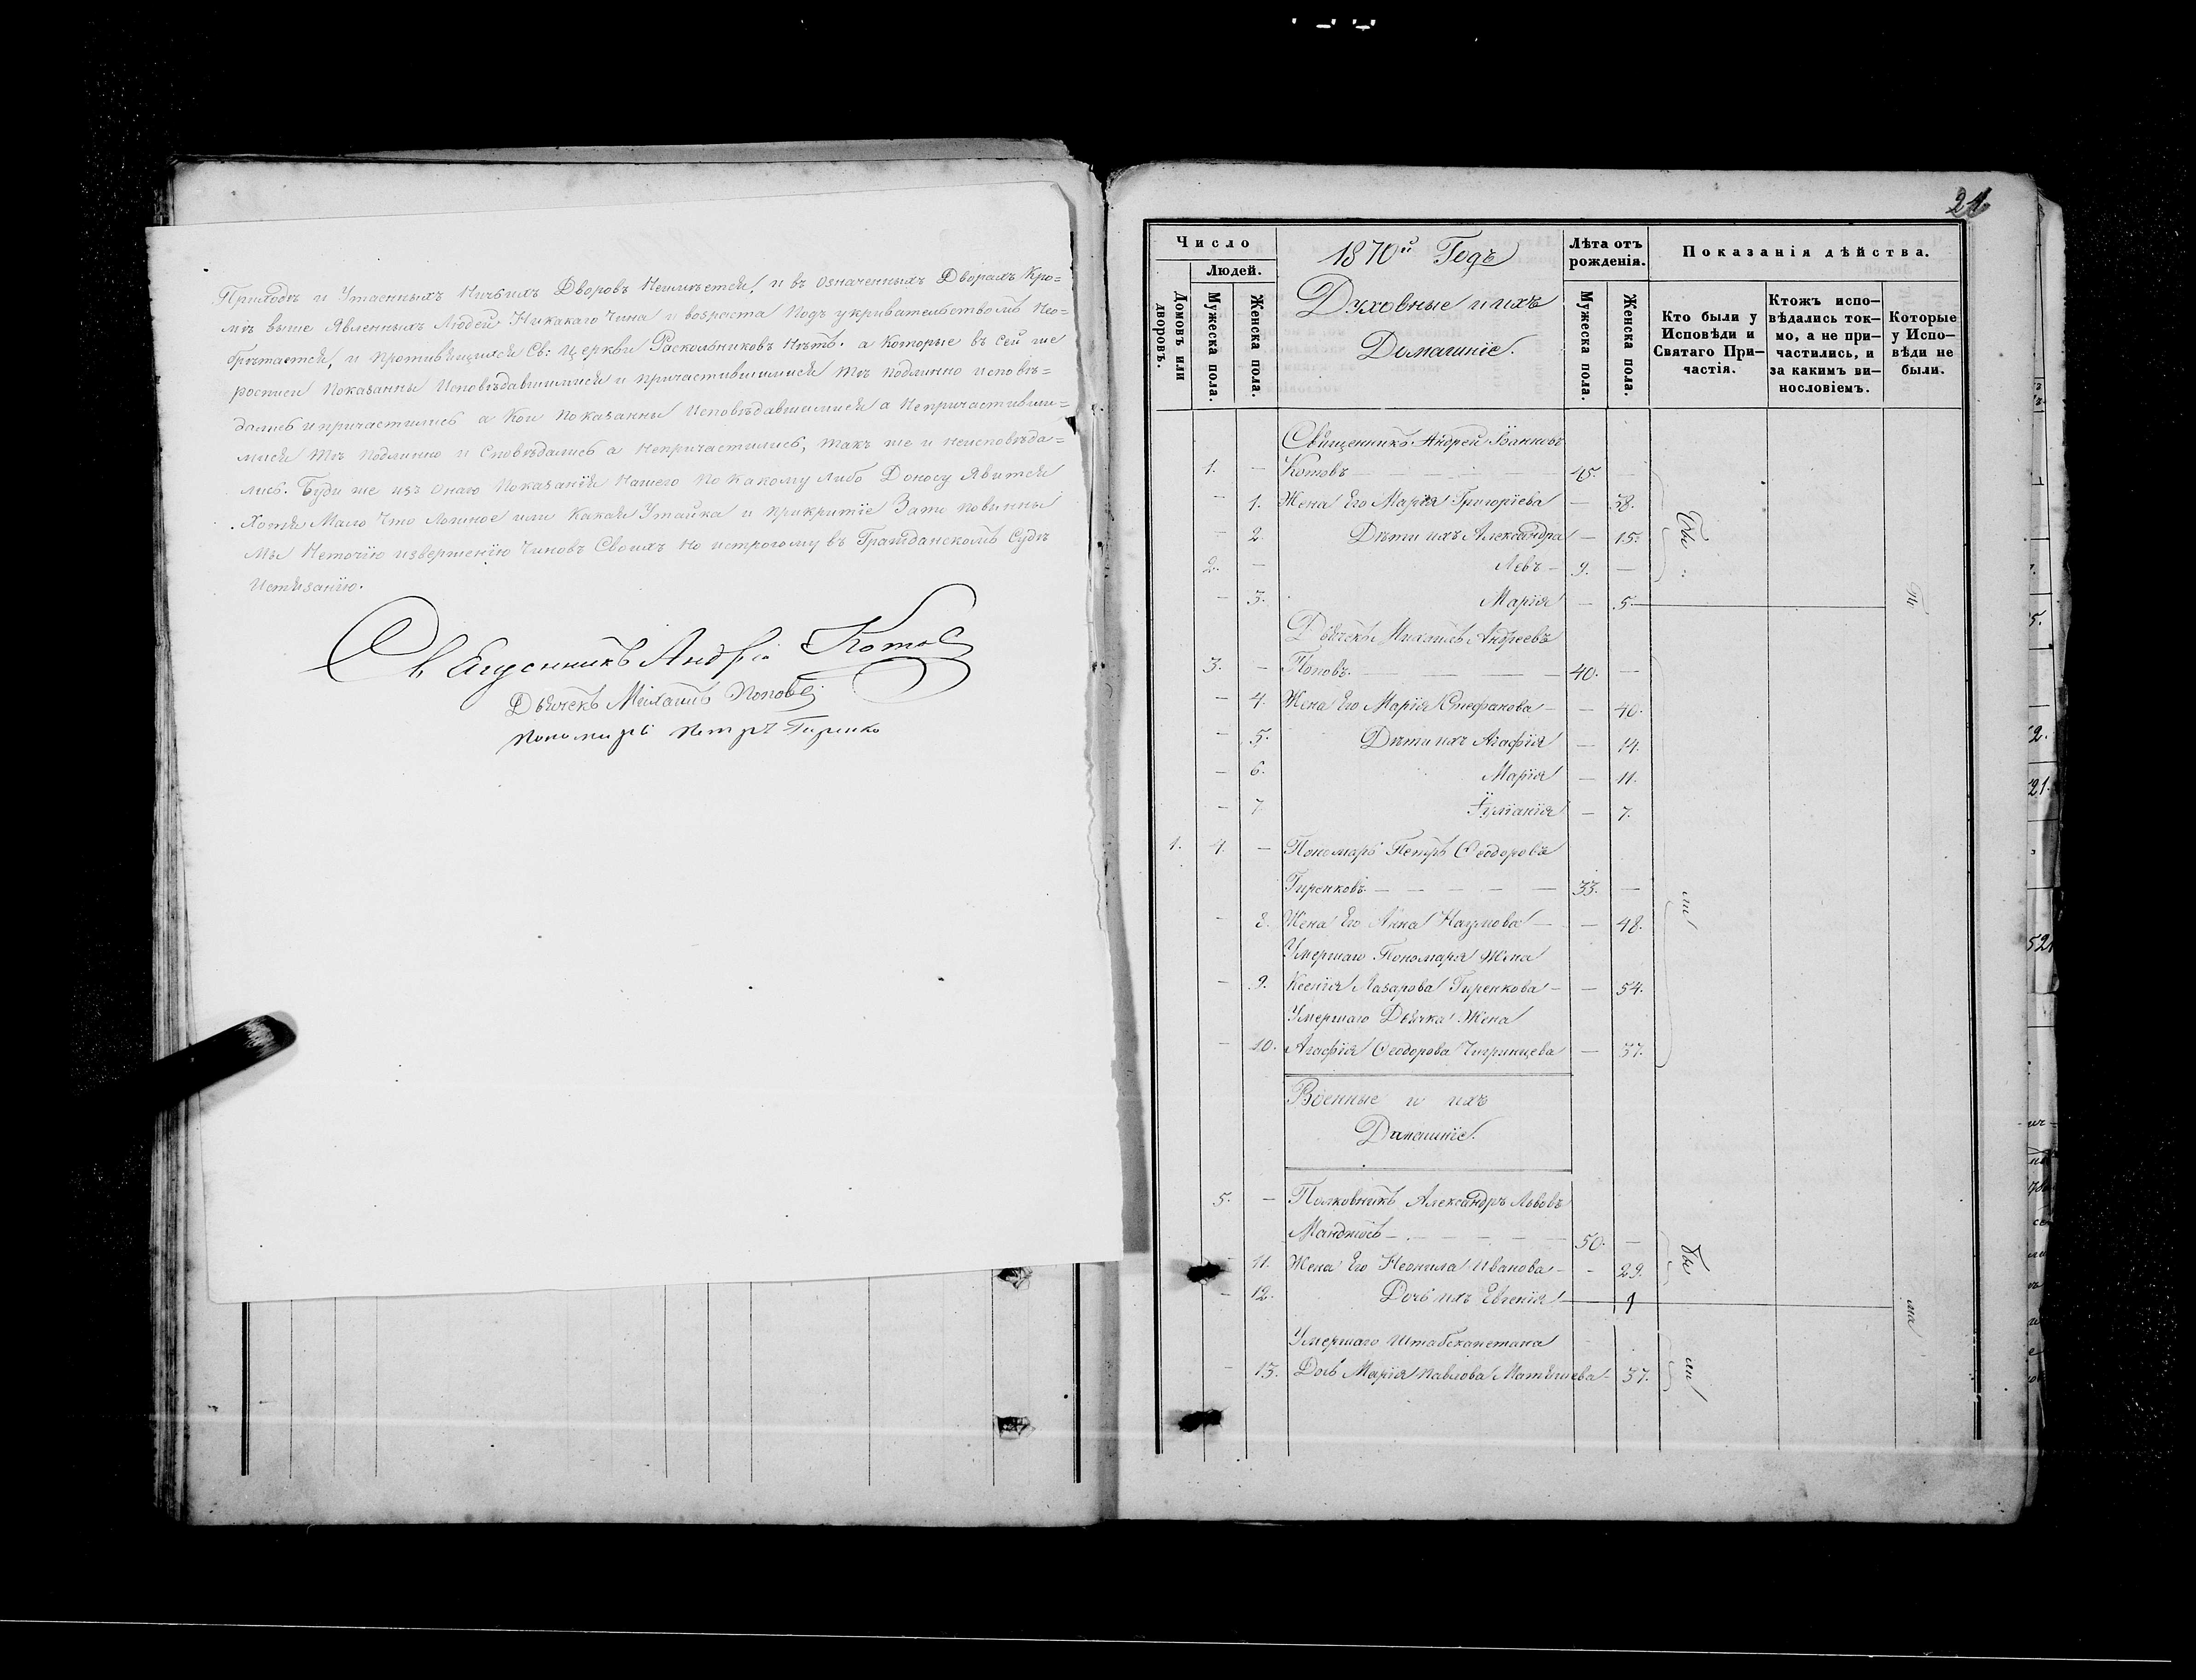 Приходѣ и Утаенныхъ Ничьихъ Дворовъ Неимѣется, и въ означенныхъ Дворахъ Кро=
мѣ выше Явленныхъ Людей Никакаго Чина и возраста Подъ укривательствомъ Нео=
брѣтается, и противящихся Св: Церкви Раскольниковъ Нѣтъ. а Которые въ Сей же
росписи Показанны Исповѣдавшимися и причастившимися Тѣ Подлинно исповѣ=
дались и причастились а Кои Показанны Исповѣдавшамися а Непричастивши=
мися Тѣ подлинно и Сповѣдались а Непричастились, такъ же и неисповѣда=
лись. Буди же изъ Онаго Показанія Нашего По Какому Либо Доносу Явится
Хотя Мало Что Ложное или Какая Утайка и прикритіе Зато повинны
Мы Неточію извершенію Чиновъ Своихъ Но истрогому въ Гражданскомъ Судѣ
Истязанію.
Священникъ Андрей Котовъ
Дьячекъ Михаилъ Поповъ
Пономарь Петръ Гиренко
21
Число
Людей.
Домовъ или дворовъ.
Мужеска пола.
Женска пола.
1870й Годъ
Духовные и ихъ
Домашніе.
Лѣта отъ рожденія.
Мужеска пола.
Женска пола.
Показанія дѣйства.
Кто были у Исповѣди и Святаго При-частія.
Ктожъ испо-вѣдались ток-мо, а не при-частились, и за какимъ ви-нословіемъ.
Которые у Испо-вѣди не были.
Священникъ Андрей Іоанновъ
1. — Котовъ — — — — 45. —
— 1. Жена Его Марія Григоріева — 38.
— 2. Дѣти ихъ Александра — 15.
Бы
2. — Левъ — 9. —
— 3. Марія — 5.
Дьячекъ Михаилъ Андреевъ
3. — Поповъ. — — — — 40. —
— 4. Жена Его Марія Стефанова — — 40.
— 5. Дѣти ихъ Агафія — 14.
— 6. Марія — 11.
— 7 Іуліанія — 7.
1. 4. — Пономарь Петръ Ѳеодоровъ
Гиренковъ. — — — — — 33. —
ли
— 8. Жена Его Анна Наумова — — 48.
Умершаго Пономаря Жена
— 9. Ксенія Лазарова Гиренкова — — 54.
Умершаго Дьячка Жена
— 10. Агафія Ѳеодорова Чигринцева — 37.
Военные и ихъ
Домашніе.
5. — Полковникъ Александръ Львовъ
— — — — — 50. —
Бы
— 11. Жена Его Неонила Иванова — — 29.
— 12. Дочь ихъ Евгенія 1
ма
Умершаго Штабскапетана
— 13. Дочь Марія Павлова — 37.
ли